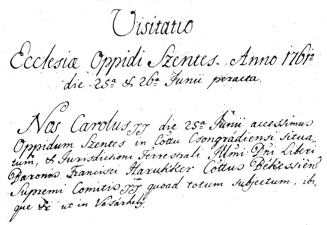 Visitatio
Ecclesiæ Oppidi Szentes. Anno 1761o
die 25a & 26a Junii peracta.
Nos Carolus pp die 25a Junii accessimus
Oppidum Szentes in Cottu Csongrádiensi situa,
tum, & Jurisdictioni Terrestrali Illmi Dni Liberi
Baronis Francisci Harukker Cottus Békessiens
Supremi Comitis pp quoad totum subjectum, ib,
que & ut in Vásárhely